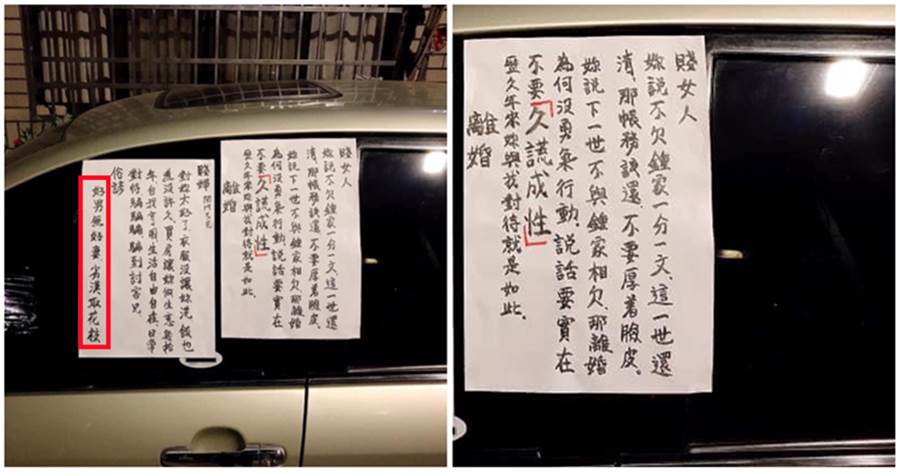 賤女人
妳說不欠鍾家一分一文,這一世還
清,那帳務該還,不要厚着臉皮。
妳說下一世不與鍾家相欠,那離婚
為何沒勇氣行動,說話要實在
不要「久謊成性」
歷久年來妳與我對待就是如此.
離婚
賤婦
對妳太好了,衣服沒讓妳洗,飯也
煮沒許久,買房讓妳做生意
年自我享用,生活自由自在,日常
對待騙騙騙,騙到討客兄.
俗諺
好男無好妻,劣漢取花枝
賤女人
妳說不欠鍾家一分一文,這一世還
清,那帳務該還,不要厚着臉皮。
妳說下一世不與鍾家相欠,那離婚
為何沒勇氣行動,說話要實在
不要「久謊成性」
歷久年來妳與我對待就是如此.
離婚